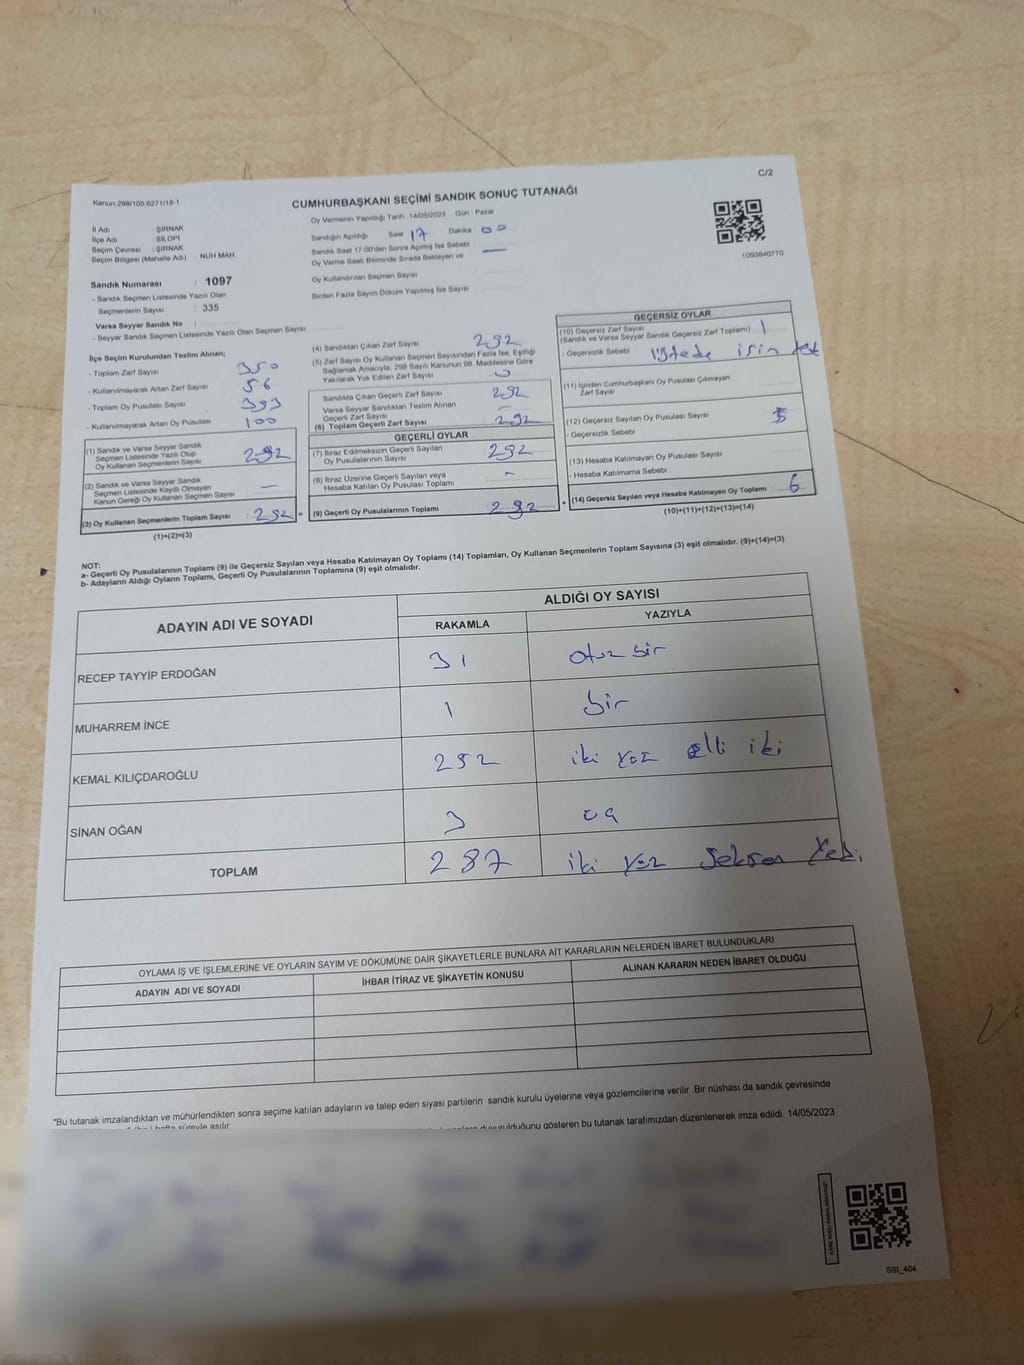 C/2
Kanun,298/105,6271/16-1
CUMHURBAŞKANI SEÇİMİ SANDIK SONUÇ TUTANAĞI
Oy Vermenin Yapıldığı Tarih : 14/05/2023 Gün : Pazar
İl Adı ŞIRNAK
İlçe Adı : SİLOPİ
Seçim Çevresi : ŞIRNAK
Seçim Bölgesi (Mahalle Adı) NUH MAH.
Sandığın Açıldığı Saat 17 Dakika 00
Sandık Saat 17:00'den Sonra Açılmış İse Sebebi —
Oy Verme Saati Bitiminde Sırada Bekleyen ve
Oy Kullandırılan Seçmen Sayısı
Birden Fazla Sayım Döküm Yapılmış İse Sayısı
1093840770
Sandık Numarası : 1097
- Sandık Seçmen Listesinde Yazılı Olan
Seçmenlerin Sayısı : 335
Varsa Seyyar Sandık No
- Seyyar Sandık Seçmen Listesinde Yazılı Olan Seçmen Sayısı
İlçe Seçim Kurulundan Teslim Alınan;
- Toplam Zarf Sayısı 350
- Kullanılmayarak Artan Zarf Sayısı 56
- Toplam Oy Pusulası Sayısı 393
- Kullanılmayarak Artan Oy Pusulası 100
(1) Sandık ve Varsa Seyyar Sandık
Seçmen Listesinde Yazılı Olup
Oy Kullanan Seçmenlerin Sayısı 292
(2) Sandık ve Varsa Seyyar Sandık
Seçmen Listesinde Kayıtlı Olmayan
Kanun Gereği Oy Kullanan Seçmen Sayısı —
(3) Oy Kullanan Seçmenlerin Toplam Sayısı : 292 =
(1)+(2)=(3)
(4) Sandıktan Çıkan Zarf Sayısı 292
(5) Zarf Sayısı Oy Kullanan Seçmen Sayısından Fazla İse, Eşitliği
Sağlamak Amacıyla, 298 Sayılı Kanunun 98. Maddesine Göre
Yakılarak Yok Edilen Zarf Sayısı
Sandıkta Çıkan Geçerli Zarf Sayısı 292
Varsa Seyyar Sandıktan Teslim Alınan
Geçerli Zarf Sayısı —
(6) Toplam Geçerli Zarf Sayısı 292
GEÇERLİ OYLAR
(7) İtiraz Edilmeksizin Geçerli Sayılan
Oy Pusulalarının Sayısı 292
(8) İtiraz Üzerine Geçerli Sayılan veya
Hesaba Katılan Oy Pusulası Toplamı —
(9) Geçerli Oy Pusulalarının Toplamı 292 +
GEÇERSİZ OYLAR
(10) Geçersiz Zarf Sayısı
(Sandık ve Varsa Seyyar Sandık Geçersiz Zarf Toplamı) 1
- Geçersizlik Sebebi
(11) İçinden Cumhurbaşkanı Oy Pusulası Çıkmayan
Zarf Sayısı
(12) Geçersiz Sayılan Oy Pusulası Sayısı 5
- Geçersizlik Sebebi
(13) Hesaba Katılmayan Oy Pusulası Sayısı
- Hesaba Katılmama Sebebi
(14) Geçersiz Sayılan veya Hesaba Katılmayan Oy Toplamı 6
(10)+(11)+(12)+(13)=(14)
NOT:
a- Geçerli Oy Pusulalarının Toplamı (9) ile Geçersiz Sayılan veya Hesaba Katılmayan Oy Toplamı (14) Toplamları, Oy Kullanan Seçmenlerin Toplam Sayısına (3) eşit olmalıdır. (9)+(14)=(3)
b- Adayların Aldığı Oyların Toplamı, Geçerli Oy Pusulalarının Toplamına (9) eşit olmalıdır.
ADAYIN ADI VE SOYADI ALDIĞI OY SAYISI
RAKAMLA YAZIYLA
RECEP TAYYİP ERDOĞAN 31 otuz bir
MUHARREM İNCE 1 bir
KEMAL KILIÇDAROĞLU 252 iki yüz elli iki
SİNAN OĞAN 3 üç
TOPLAM 287 iki yüz seksen yedi
OYLAMA İŞ VE İŞLEMLERİNE VE OYLARIN SAYIM VE DÖKÜMÜNE DAİR ŞİKAYETLERLE BUNLARA AİT KARARLARIN NELERDEN İBARET BULUNDUKLARI
ADAYIN ADI VE SOYADI İHBAR İTİRAZ VE ŞİKAYETİN KONUSU ALINAN KARARIN NEDEN İBARET OLDUĞU
*Bu tutanak imzalandıktan ve mühürlendikten sonra seçime katılan adayların ve talep eden siyasi partilerin sandık kurulu üyelerine veya gözlemcilerine verilir. Bir nüshası da sandık çevresinde
hafta süreyle asılır.
duyurulduğunu gösteren bu tutanak tarafımızdan düzenlenerek imza edildi. 14/05/2023
SSI_404